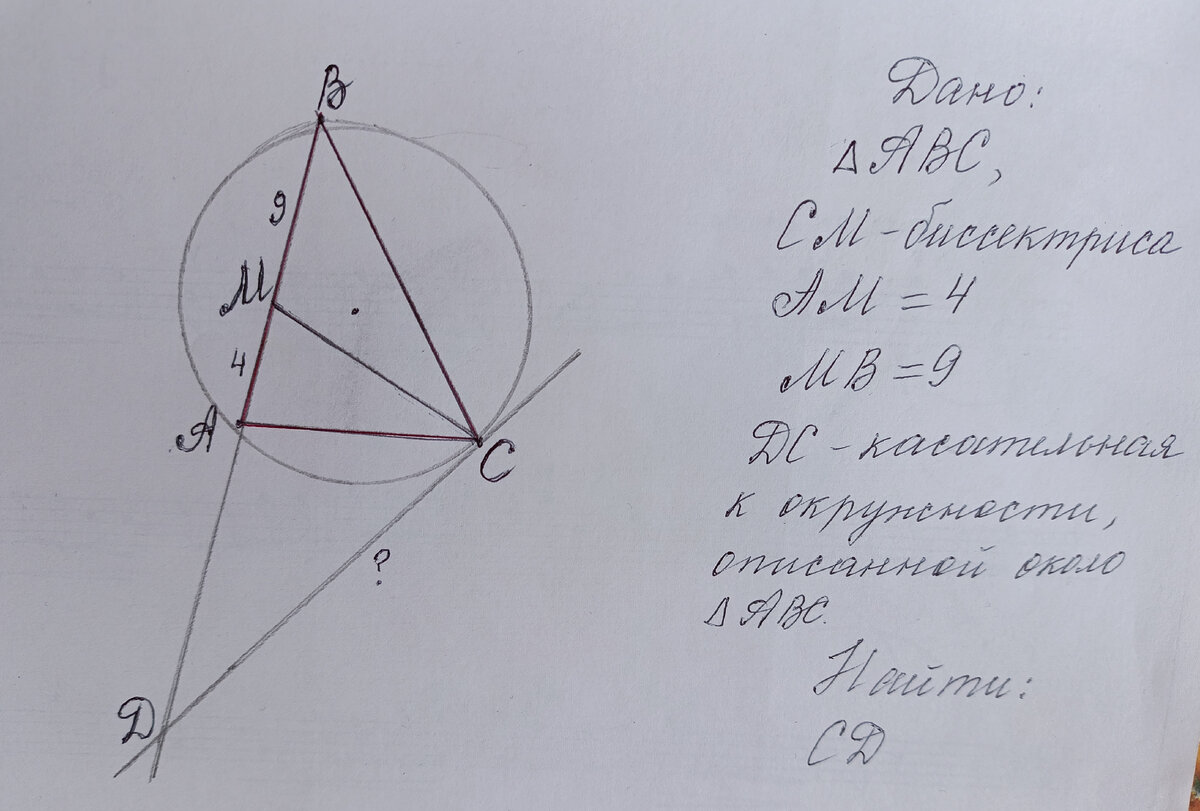 B
9
M
4
A
C
?
D
Дано:
△ABC,
CM - биссектриса
AM = 4
MB = 9
DC - касательная
к окружности,
описанной около
△ABC.
Найти:
CD